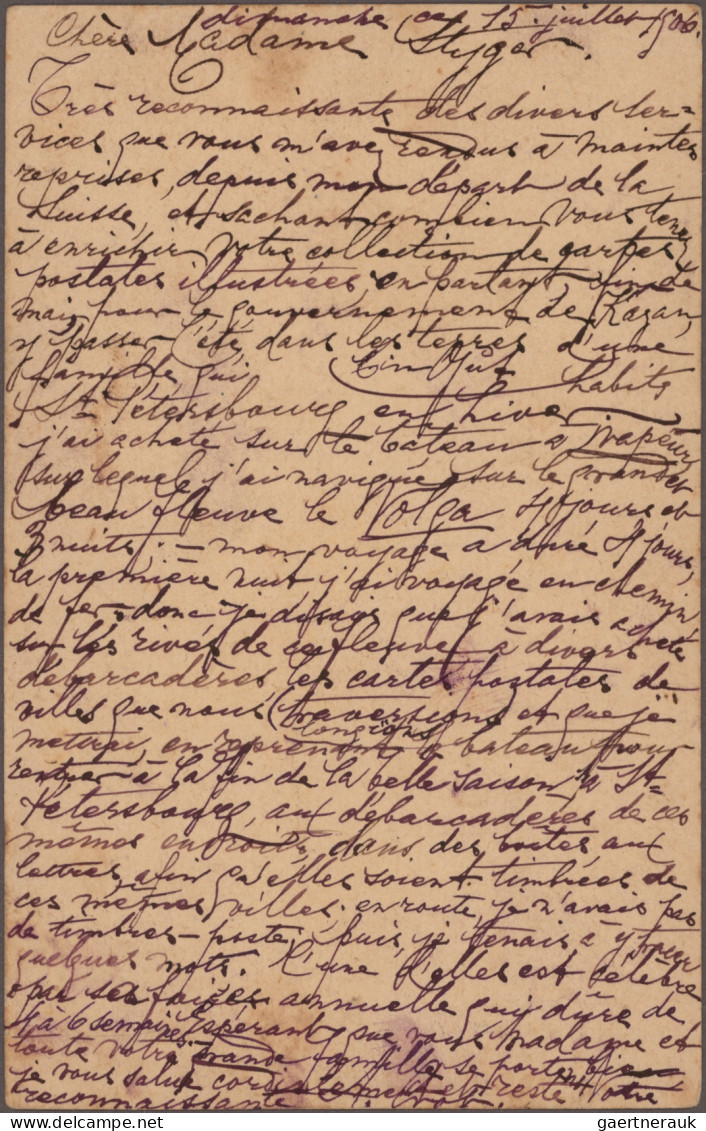 dimanche ce 15. juillet 1906.
Chère Madame Styger.
Très reconnaissante des divers ser=
vices que vous m'avez rendus à maintes
reprises, depuis mon départ de la
Suisse, et sachant combien vous tenez
à enrichir votre collection de cartes
postales illustrées, en partant, fin de
mai, pour le gouvernement de Kazan,
y passer l'été, dans les terres d'une
famille qui habite
St. Pétersbourg en hiver
j'ai acheté sur le bateau à vapeur,
sur lequel j'ai navigué sur le grand et
beau fleuve le Volga 4 jours et
3 nuits. – mon voyage a duré 4 jours,
la première nuit j'ai voyagé en chemin
de fer, donc je disais que j'avais acheté
sur les rives de ce fleuve à divers
débarcadères, les cartes postales de
villes que nous (traversions) et que je
longions
mettrai, en reprenant le bateau pour
rentrer à la fin de la belle saison à St=
Pétersbourg, aux débarcadères de ces
mêmes endroits, dans des boîtes aux
lettres, afin qu'elles soient timbrées de
ces mêmes villes; en route, je n'avais pas
de timbres–poste, puis, je tenais à y tracer
quelques mots. L'une d'elles est célèbre
par sa foire annuelle qui dure de
4 à 6 semaines Espérant que vous Madame et
toute votre grande famille se porte bien
je vous salue cordialement et reste Votre
reconnaissante
gaertnerauk